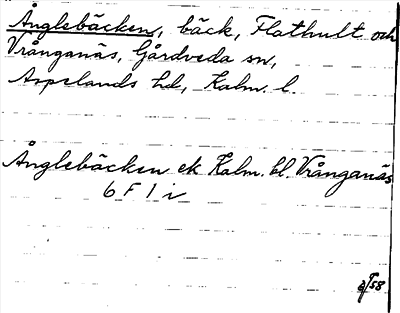 Ånglebäcken, bäck, Flathult och
Vrånganäs, Gårdveda sn,
Aspelands hd, Kalm. l.
Ånglebäcken ek Kalm. bl. Vrånganäs
6 F 1 i